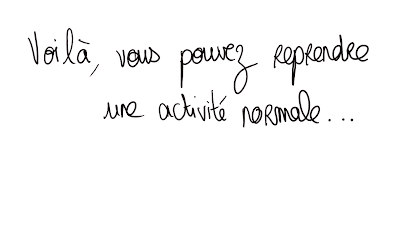 Voilà, vous pouvez reprendre
une activité normale...